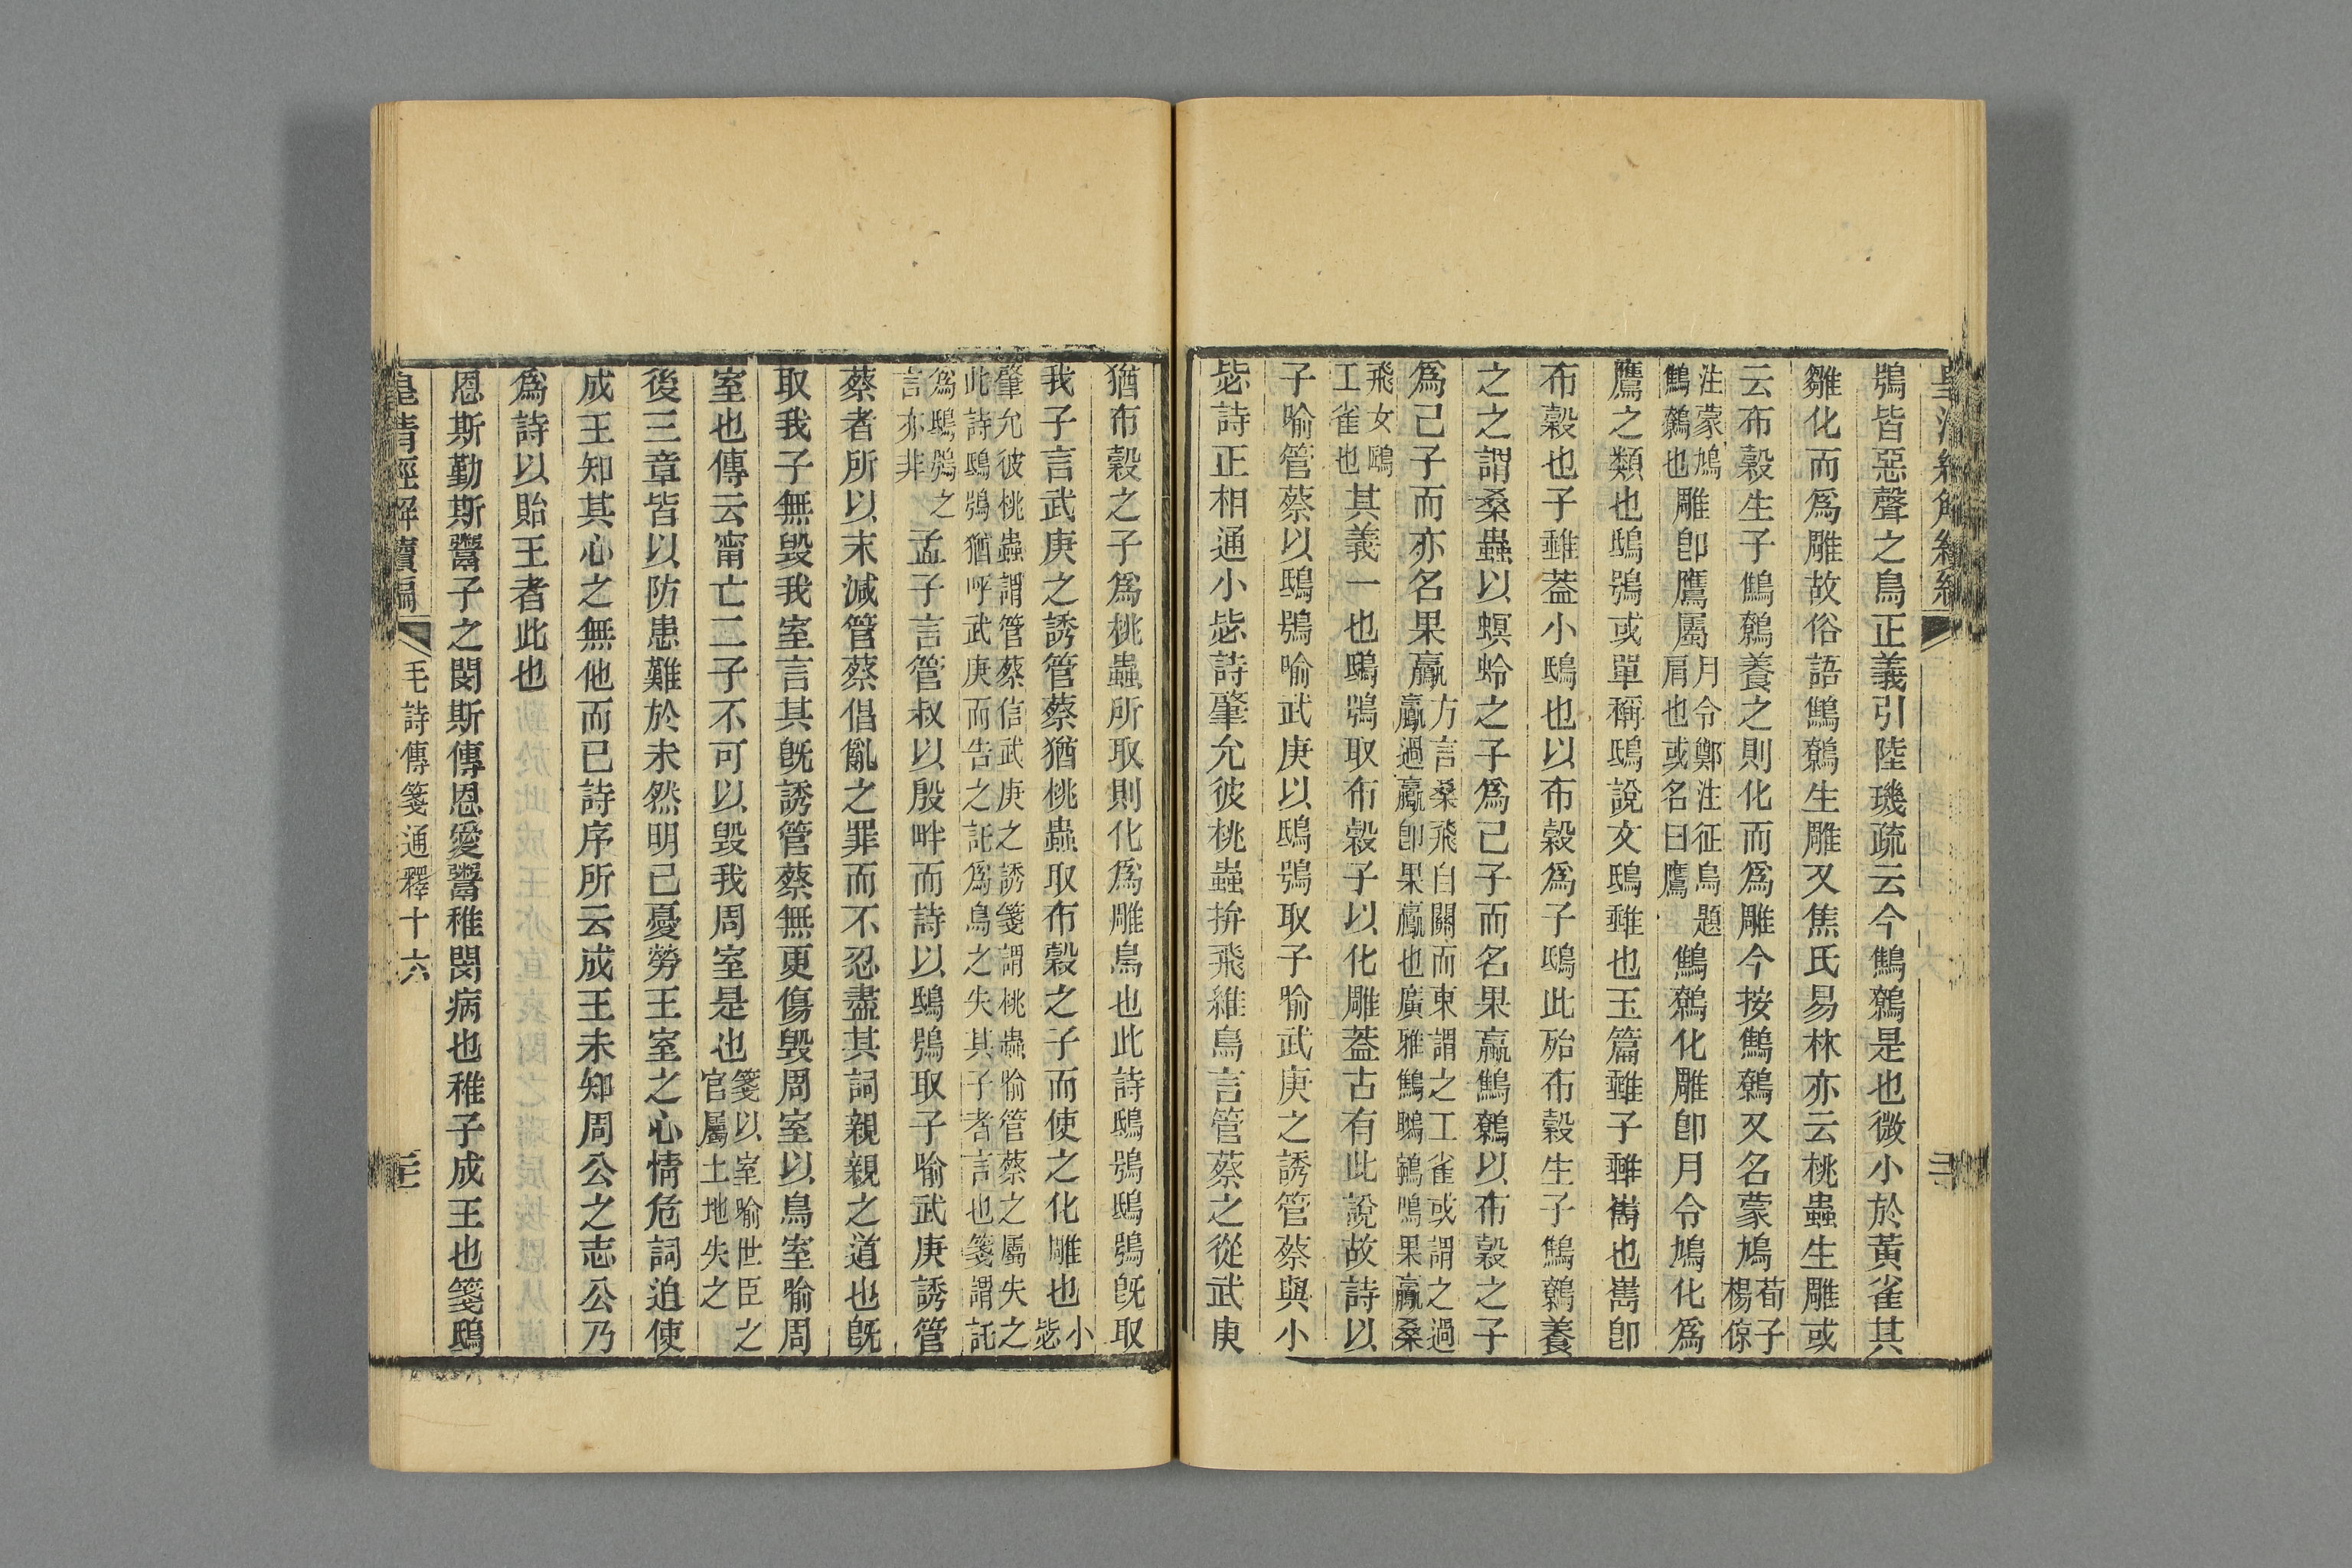 鴞皆惡聲之鳥正義引陸璣疏云今鷦鷯是也微小於黃雀其
雛化而爲雕故俗語鷦鷯生雕又焦氏易林亦云桃蟲生雕或
云布穀生子鷦鷯養之則化而爲雕今按鷦鷯又名蒙鳩荀子楊倞
注蒙鳩鷦鷯也雕卽鷹屬月令鄭注征鳥題肩也或名曰鷹鷦鷯化雕卽月令鳩化爲
鷹之類也鴟鴞或單稱鴟說文鴟雖也玉篇雖子雖嶲也嶲卽
布穀也子雖蓋小鴟也以布穀爲子鴟此殆布穀生子鷦鷯養
之之謂桑蟲以螟蛉之子爲己子而名果蠃鷦鷯以布穀之子
爲己子而亦名果蠃方言桑飛自關而東謂之工雀或謂之過蠃過蠃卽果蠃也廣雅鷦䴏鸋鴂果蠃桑
飛女鴟工雀也其義一也鴟鴞取布穀子以化雕蓋古有此說故詩以
子喻管蔡以鴟鴞喻武庚以鴟鴞取子喻武庚之誘管蔡與小
毖詩正相通小毖詩肇允彼桃蟲拚飛維鳥言管蔡之從武庚
猶布穀之子爲桃蟲所取則化爲雕鳥也此詩鴟鴞鴟鴞旣取
我子言武庚之誘管蔡猶桃蟲取布穀之子而使之化雕也小毖
肇允彼桃蟲謂管蔡信武庚之誘箋謂桃蟲喻管蔡之屬失之此詩鴟鴞猶呼武庚而告之託爲鳥之失其子者言也箋謂託
爲鴟鴞之言亦非孟子言管叔以殷畔而詩以鴟鴞取子喻武庚誘管
蔡者所以末減管蔡倡亂之罪而不忍盡其詞親親之道也旣
取我子無毀我室言其旣誘管蔡無更傷毀周室以鳥室喻周
室也傳云甯亡二子不可以毀我周室是也箋以室喻世臣之官屬土地失之
後三章皆以防患難於未然明己憂勞王室之心情危詞迫使
成王知其心之無他而已詩序所云成王未知周公之志公乃
爲詩以貽王者此也
恩斯勤斯鬻子之閔斯傳恩愛鬻稚閔病也稚子成王也箋鴟
皇清經解續編
毛詩傳箋通釋十六